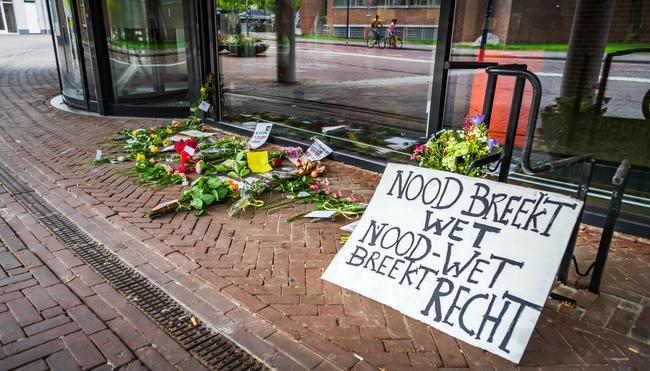 NOOD BREEKT
WET
NOOD-WET
BREEKT RECHT